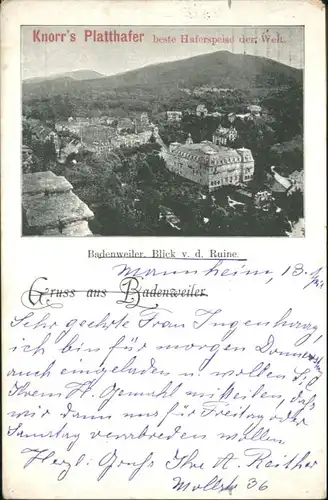 Knorr's Platthafer beste Haferspeise der Welt.
Badenweiler. Blick v. d. Ruine.
Mannheim, 13.
Gruss aus Badenweiler.
Sehr geehrte Frau Ingenhaag,
ich bin für morgen Donnerstag
auch eingeladen u. wollen Sie
Ihrem H. Gemahl mitteilen, daß
wir dann uns für Freitag oder
Samstag verabreden wollen.
Herzl. Gruß Ihre A. Reither
Mollstr 36